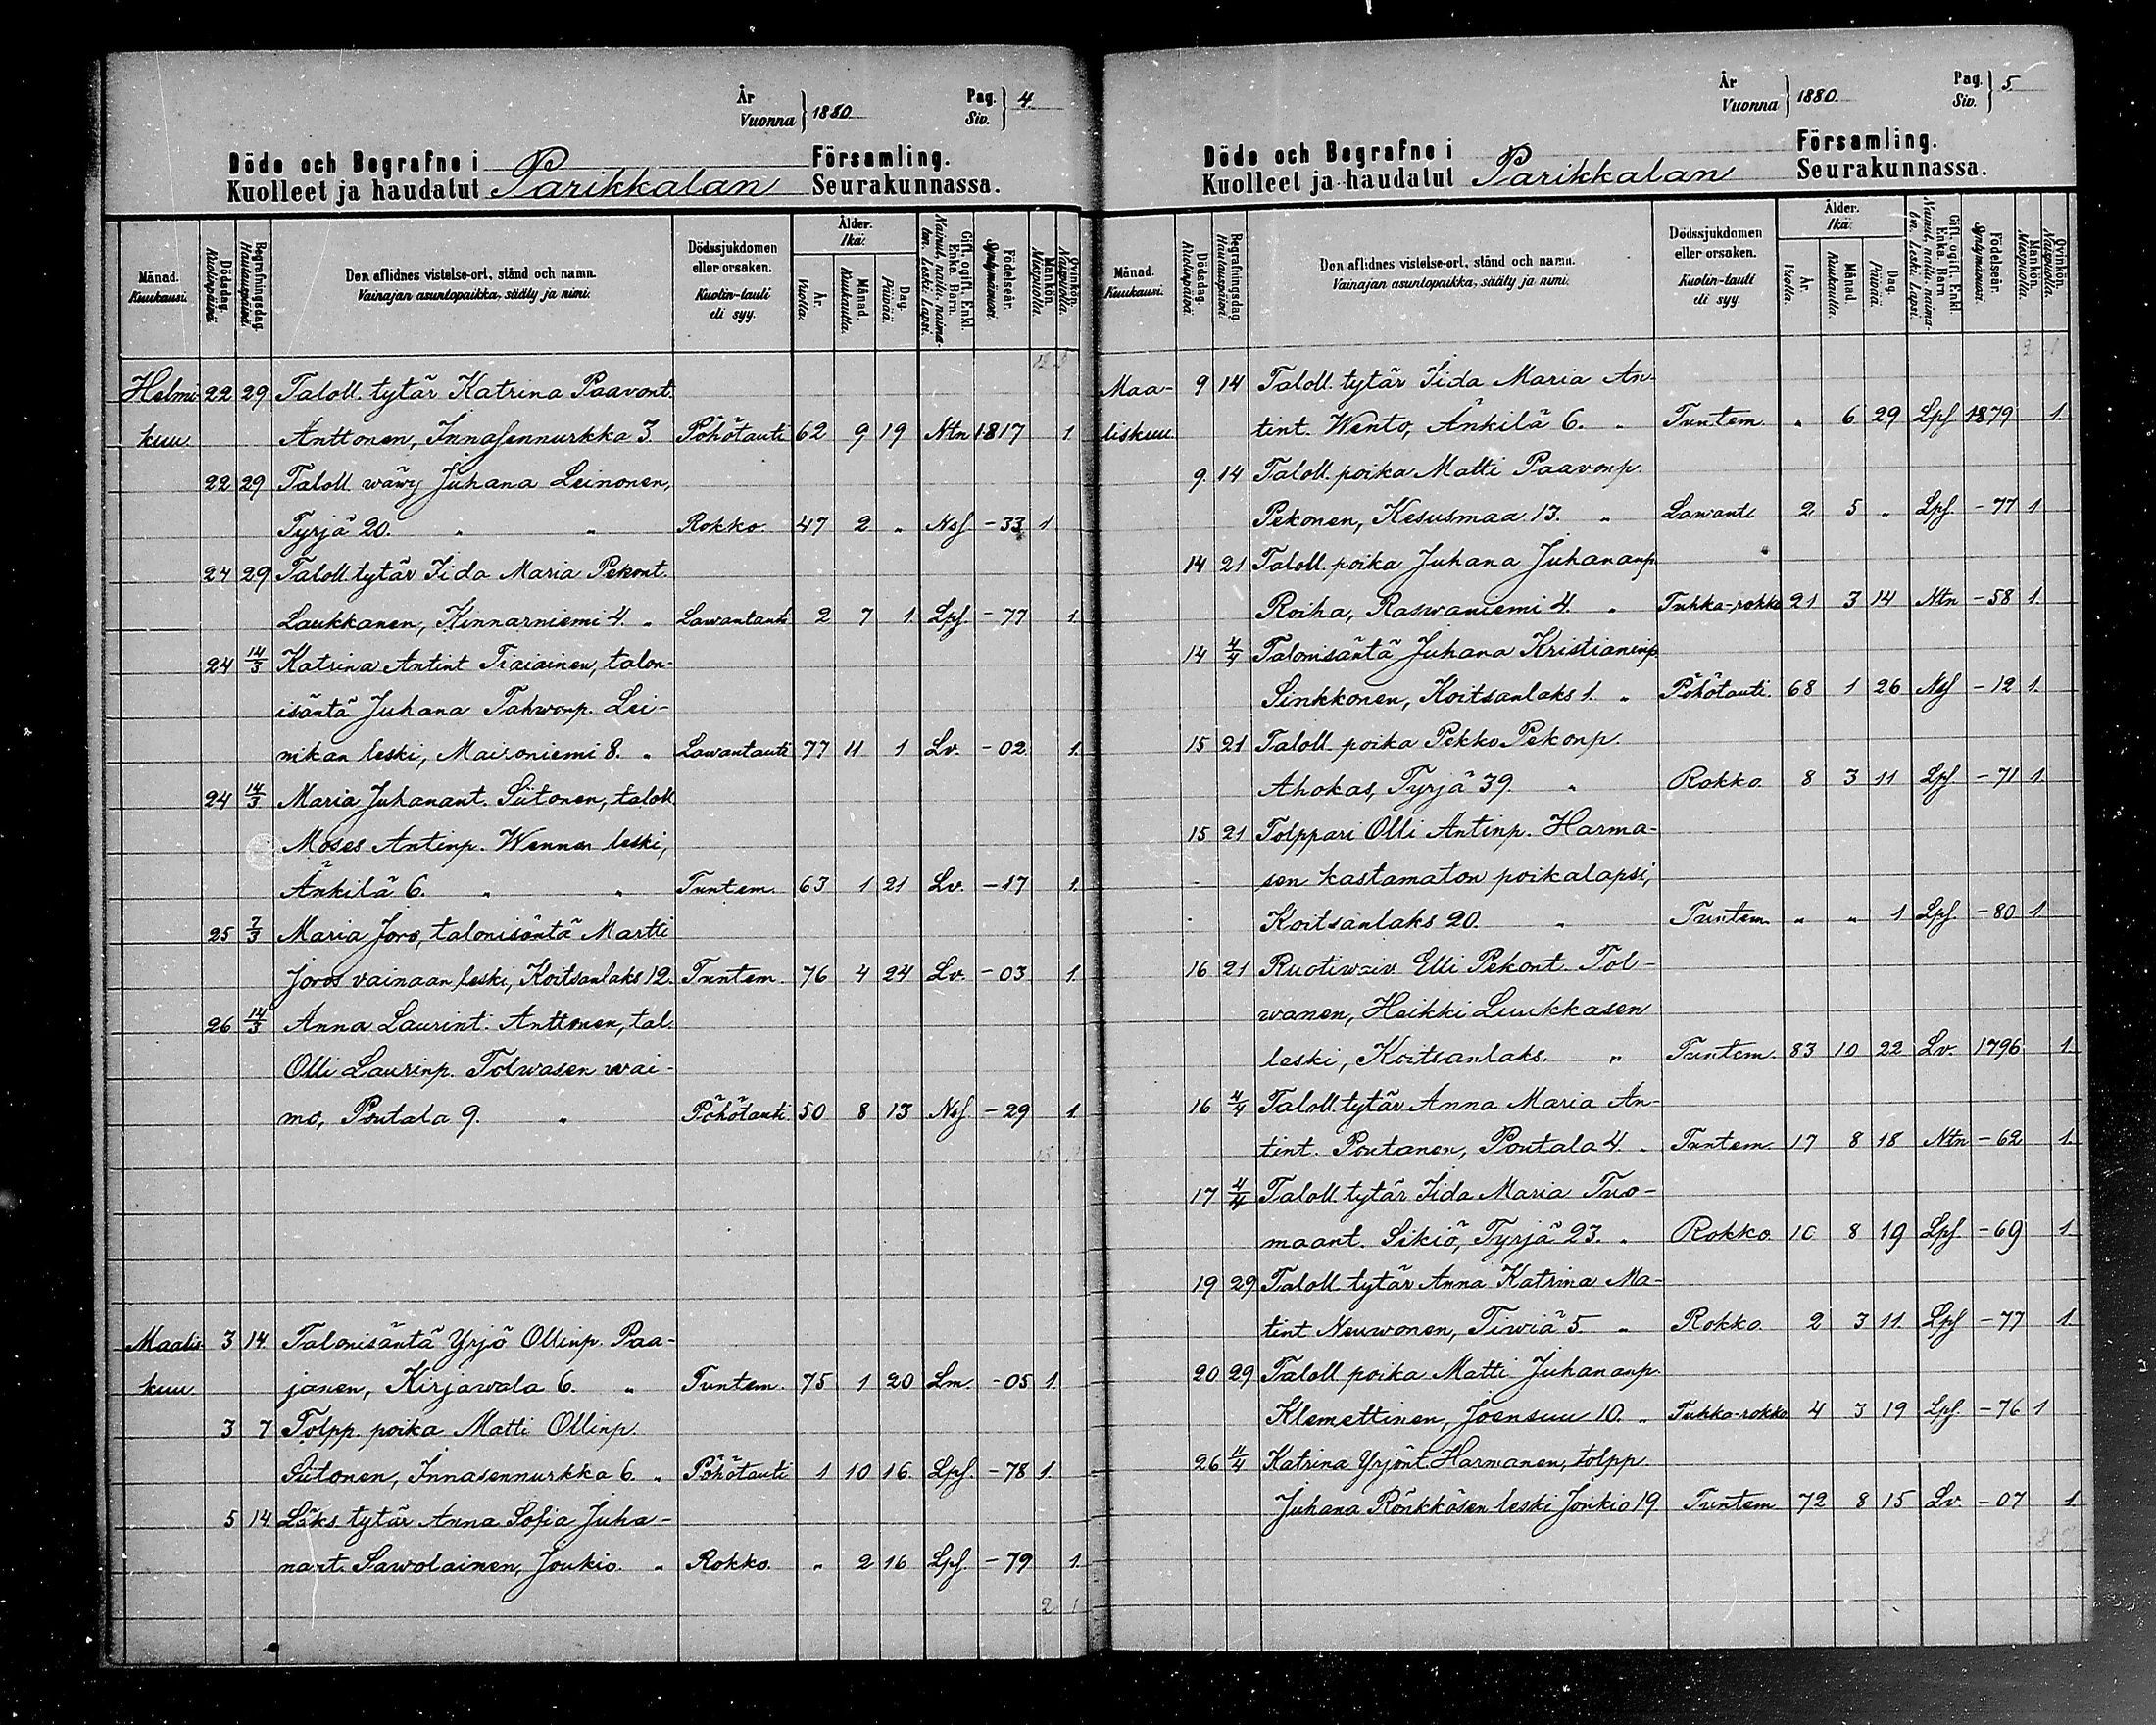 År
Vuonna } 1880.
Pag.
Siv. } 4
Döde och Begrafne i Församling.
Kuolleet ja haudatut Parikkalan Seurakunnassa.
Månad. Kuukausi.
Dödsdag. Kuolinpäivä.
Begrafningsdag. Hautauspäivä.
Den aflidnes vistelse-ort, stånd och namn.
Vainajan asuntopaikka, sääty ja nimi.
Dödssjukdomen eller orsaken.
Kuolin-tauti eli syy.
Ålder. Ikä.
År. Vuotta.
Månad. Kuukautta.
Dag. Päivää.
Gift, ogift. Enkl. Enka. Barn.
Nainut, naitu, naimaton. Leski. Lapsi.
Födelseår. Syntymävuosi.
Mankön. Miespuolia.
Qvinkön. Naispuolia.
Helmi- 22 29 Taloll. tytär Katrina Paavont.
kuu Anttonen, Innasennurkka 3 Pöhötauti 62 9 19 Ntn 1817 1.
22 29 Taloll. wäwy Juhana Leinonen,
Tyrjä 20. " " Rokko. 47 2 " Nsf. -33 1
24 29 Taloll. tytär Iida Maria Pekont.
Laukkanen, Kinnarniemi 4. " Lawantauti 2 7 1. Lpf. -77 1.
24 14/3 Katrina Antint Tiaiainen, talon-
isäntä Juhana Tahwanp. Lei-
nikan leski, Maironiemi 8. " Lawantauti 77 11 1 Lv. -02. 1.
24 14/3 Maria Juhanant. Siitonen, taloll
Moses Antinp. Wennon leski,
Änkilä 6. " " Tuntem. 63 1 21 Lv. -17 1.
25 7/3 Maria Joro, talonisäntä Martti
Joros vainaan leski, Koitsanlaks 12. Tuntem. 76 4 24 Lv. -03 1.
26 14/3 Anna Laurint. Anttonen, tal.
Olli Laurinp. Tolwasen wai-
mo, Poutala 9. " Pöhötauti. 50 8 13 Nsf. -29 1.
Maalis- 3 14. Talonisäntä Yrjö Ollinp. Paa-
kuu. janen, Kirjawala 6. " Tuntem. 75 1 20 Lm. -05 1.
3 7 Tolpp. poika Matti Ollinp.
Siitonen, Innasennurkka 6. " Pöhötauti 1 10 16. Lpf. -78 1.
5 14 Läks. tytär Anna Sofia Juha-
nant. Sawolainen, Joukio. " Rokko. " 2 16 Lpf. -79 1.
2 1
År
Vuonna } 1880.
Pag.
Siv. } 5
Döde och Begrafne i Församling.
Kuolleet ja haudatut Parikkalan Seurakunnassa.
Månad. Kuukausi.
Dödsdag. Kuolinpäivä.
Begrafningsdag. Hautauspäivä.
Den aflidnes vistelse-ort, stånd och namn.
Vainajan asuntopaikka, sääty ja nimi.
Dödssjukdomen eller orsaken.
Kuolin-tauti eli syy.
Ålder. Ikä.
År. Vuotta.
Månad. Kuukautta.
Dag. Päivää.
Gift, ogift. Enkl. Enka. Barn.
Nainut, naitu, naimaton. Leski. Lapsi.
Födelseår. Syntymävuosi.
Mankön. Miespuolia.
Qvinkön. Naispuolia.
2 1
Maa- 9 14 Taloll. tytär Iida Maria An-
liskuu. tint. Wento, Änkilä 6. " Tuntem. " 6 29 Lpf. 1879 1.
9. 14 Taloll. poika Matti Paavonp.
Pekonen, Kesusmaa 13. " Lawant. 2 5 " Lpf. -77 1
14 21 Taloll. poika Juhana Juhananp.
Roiha, Raswaniemi 4. " Tuhka-rokko 21 3 14 Ntn -58 1.
14 4/4 Talonisäntä Juhana Kristianinp.
Sinkkonen, Koitsanlaks 1. " Pöhötauti. 68 1 26 Nsf -12 1.
15 21 Taloll. poika Pekko Pekonp.
Ahokas, Tyrjä 39. " Rokko. 8 3 11 Lpf -71 1.
15 21 Tolppari Olli Antinp. Harma-
sen kastamaton poikalapsi,
Koitsanlaks 20. " Tuntem. " " 1 Lpf. -80 1
16 21 Ruotiwaiv. Elli Pekont. Tol-
wanen, Heikki Luukkasen
leski, Koitsanlaks. " Tuntem. 83 10 22 Lv. 1796 1.
16 4/4 Taloll. tytär Anna Maria An-
tint. Poutanen, Poutala 4. " Tuntem. 17 8 18 Ntn -62 1.
17 4/4 Taloll. tytär Iida Maria Tuo-
maant. Sikiö, Tyrjä 23. " Rokko. 10 8 19 Lpf. -69 1.
19 29 Taloll. tytär Anna Katrina Ma-
tint Neuwonen, Tiwiä 5. " Rokko. 2 3 11. Lpf -77 1.
20 29 Taloll. poika Matti Juhananp.
Klemettinen, Joensuu 10. " Tuhka-rokko 4 3 19 Lpf. -76 1
26 4/4 Katrina Yrjönt. Harmanen, tolpp.
Juhana Rönkkösen leski Joukio 19 Tuntem. 72 8 15 Lv. -07 1